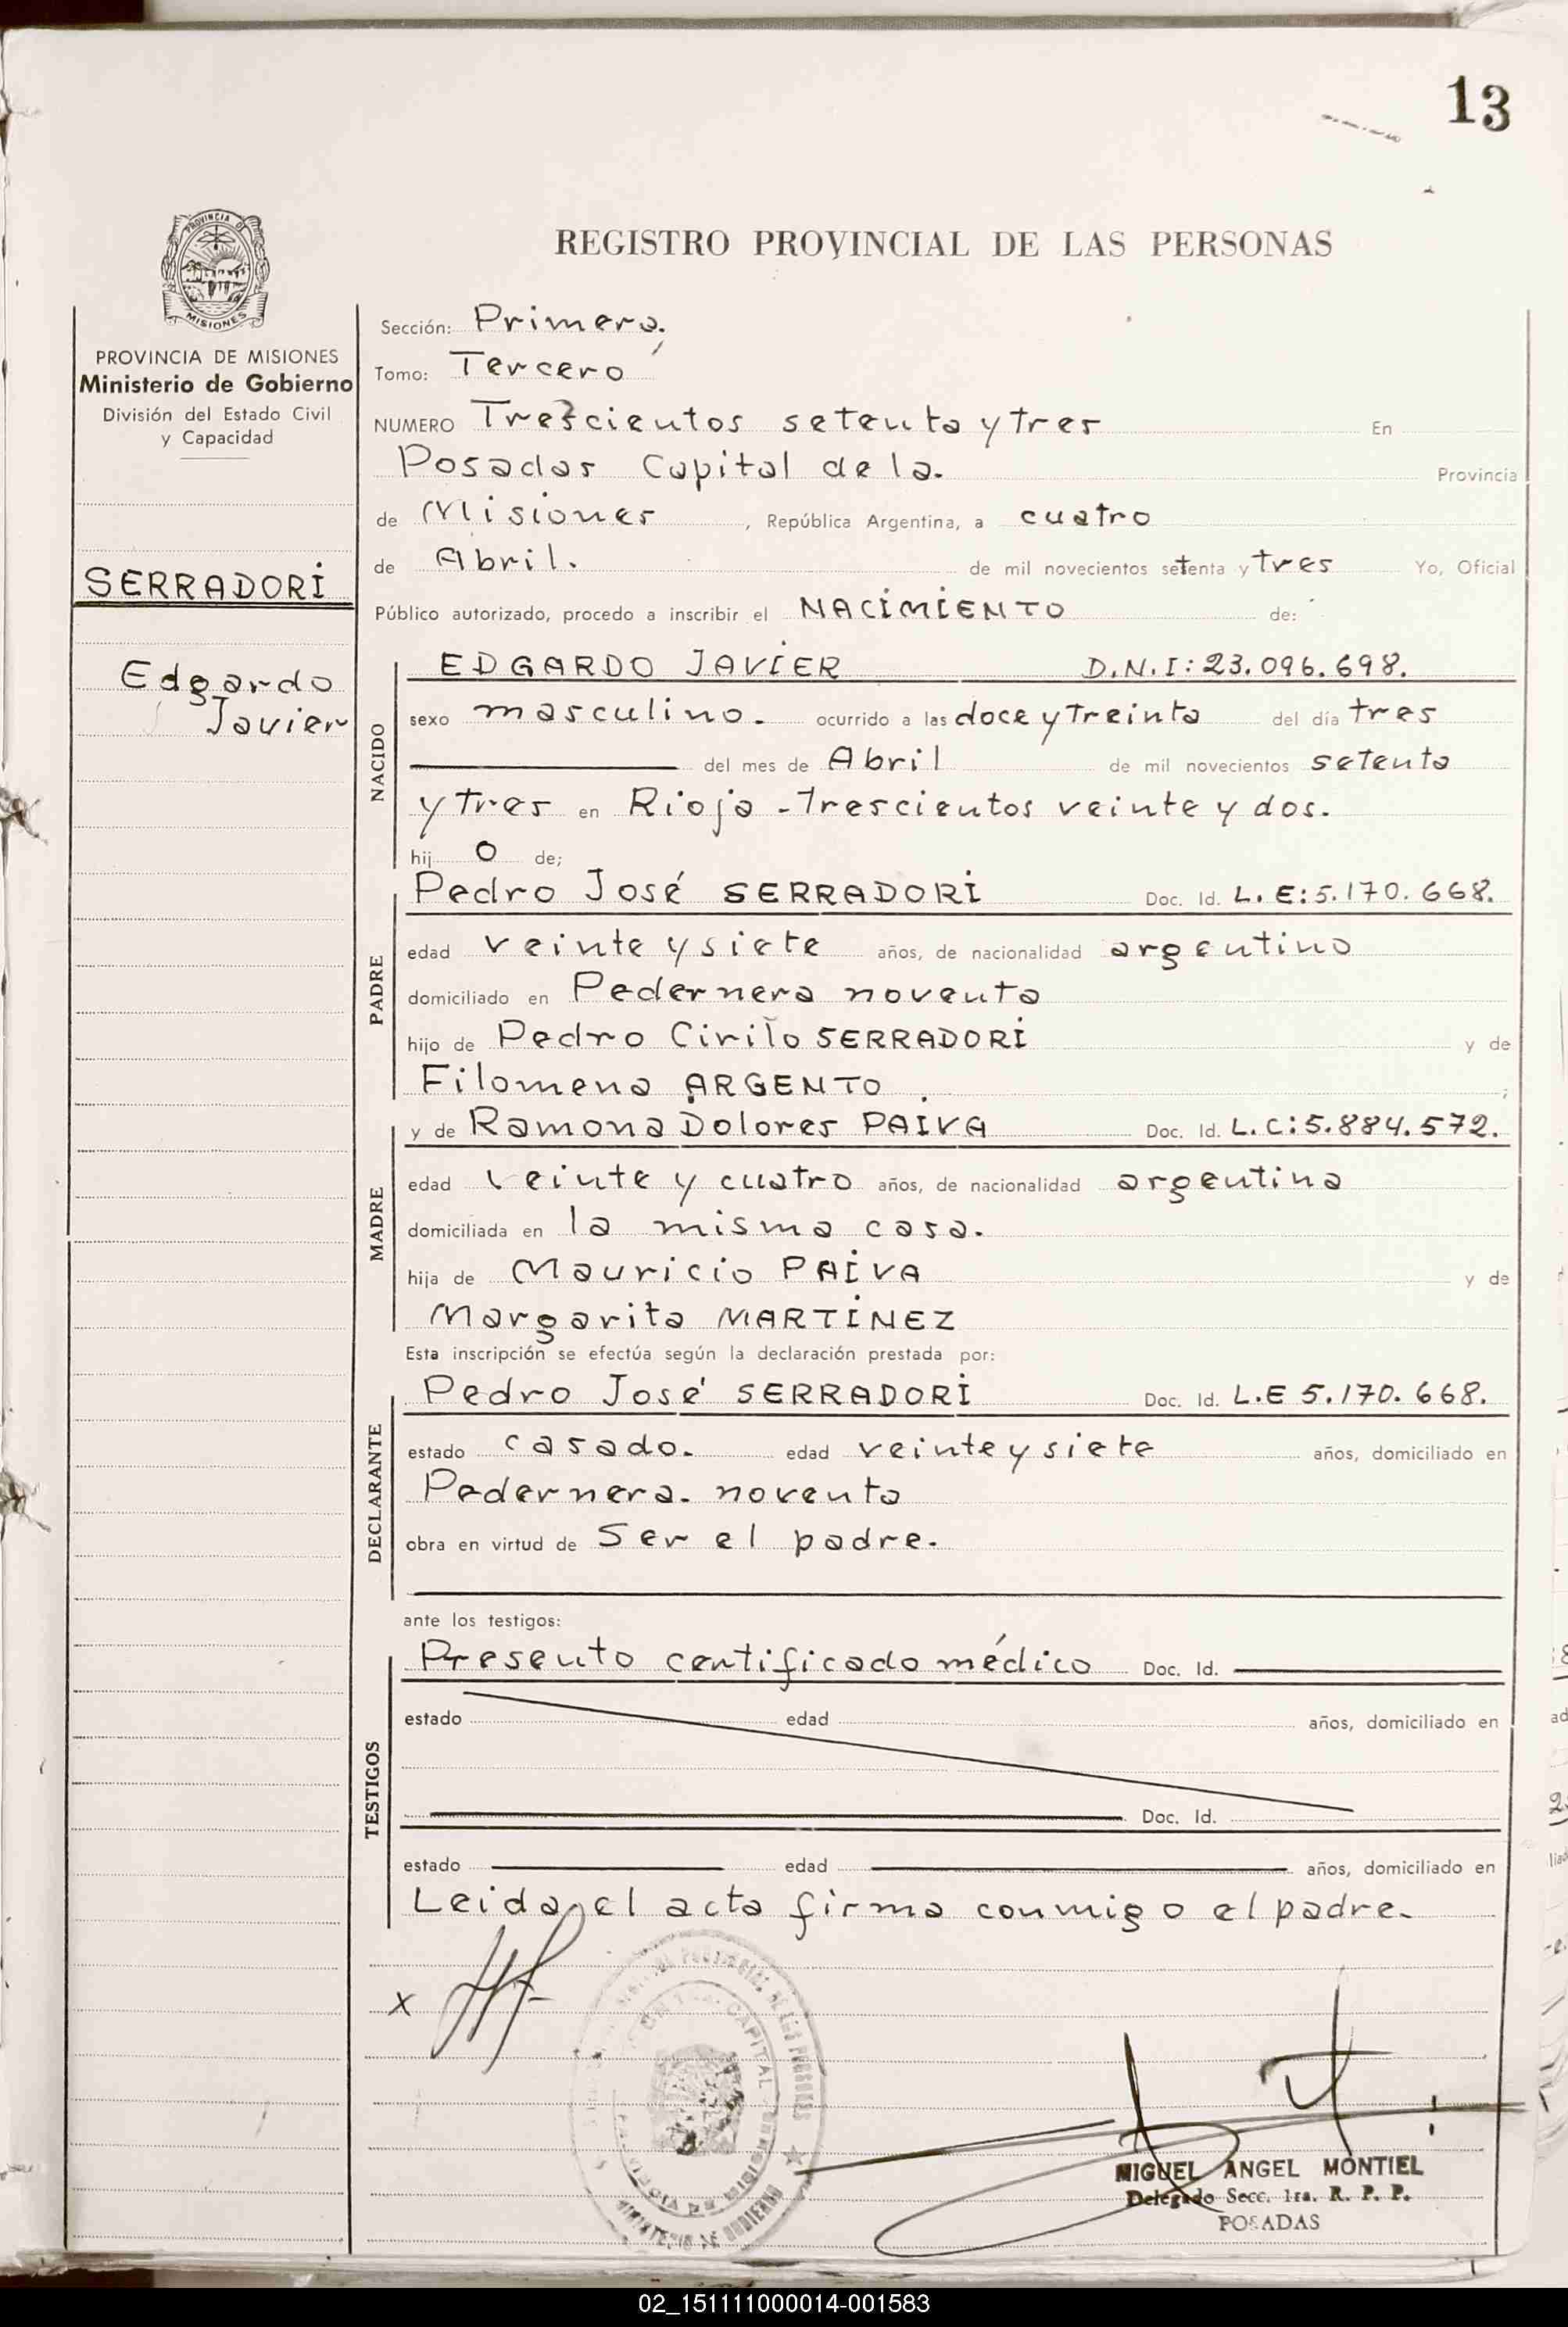 13
PROVINCIA DE
MISIONES
REGISTRO PROVINCIAL DE LAS PERSONAS
PROVINCIA DE MISIONES
Ministerio de Gobierno
División del Estado Civil
y Capacidad
SERRADORI
Edgardo
Javier
Sección: Primera.
Tomo: Tercero
NUMERO Trescientos setenta y tres En
Posadas Capital de la. Provincia
de Misiones, República Argentina, a cuatro
de Abril. de mil novecientos setenta y tres Yo, Oficial
Público autorizado, procedo a inscribir el NACIMIENTO de:
NACIDO
EDGARDO JAVIER D.N.I: 23.096.698.
sexo masculino. ocurrido a las doce y treinta del día tres
del mes de Abril de mil novecientos setenta
y tres en Rioja - trescientos veinte y dos.
hij o de;
PADRE
Pedro José SERRADORI Doc. Id. L. E: 5.170.668.
edad veinte y siete años, de nacionalidad argentino
domiciliado en Pedernera noventa
hijo de Pedro Cirilo SERRADORI y de
Filomena ARGENTO ;
MADRE
y de Ramona Dolores PAIVA Doc. Id. L.C: 5.884.572.
edad veinte y cuatro años, de nacionalidad argentina
domiciliada en la misma casa.
hija de Mauricio PAIVA y de
Margarita MARTINEZ
Esta inscripción se efectúa según la declaración prestada por:
DECLARANTE
Pedro José SERRADORI Doc. Id. L.E 5.170.668.
estado casado. edad veinte y siete años, domiciliado en
Pedernera. noventa
obra en virtud de Ser el padre.
ante los testigos:
TESTIGOS
Presento certificado médico Doc. Id.
estado edad años, domiciliado en
Doc. Id.
estado edad años, domiciliado en
Leida el acta firma conmigo el padre.
x
CAPITAL
MINISTERIO DE GOBIERNO
MIGUEL ANGEL MONTIEL
Delegado Secc. 1ra. R. P. P.
POSADAS
02_151111000014-001583